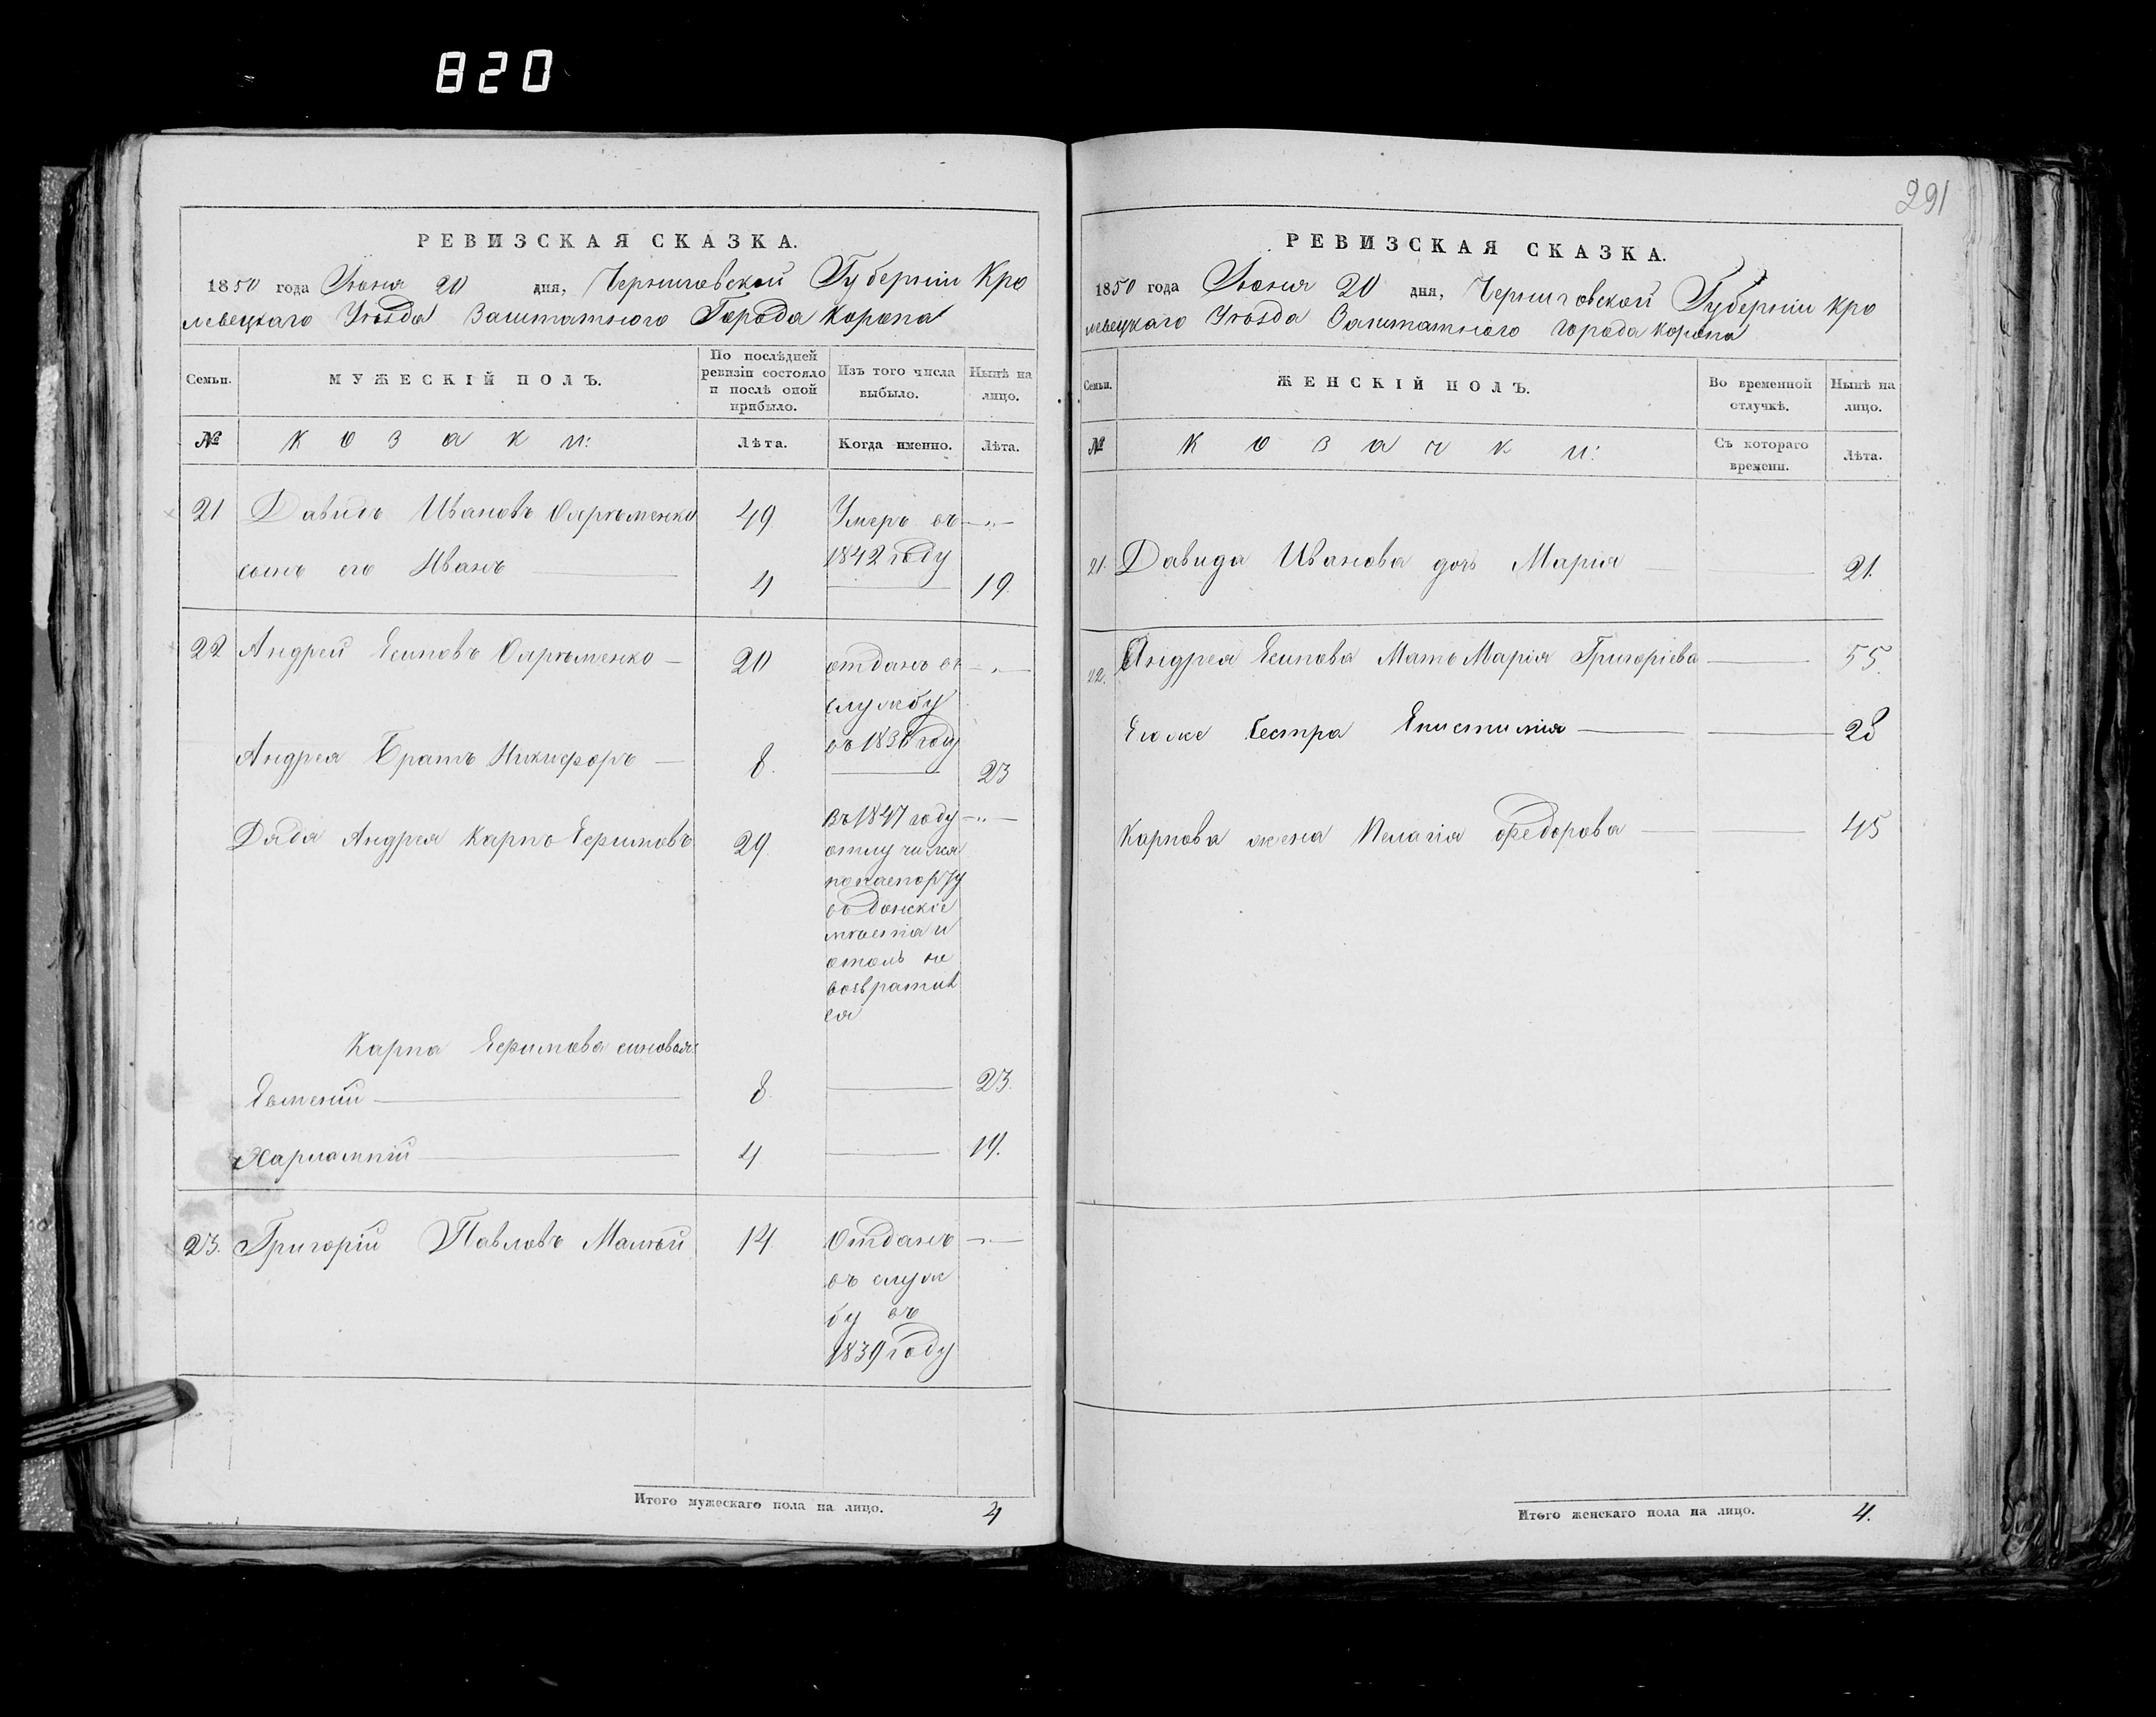 820
291
РЕВИЗСКАЯ СКАЗКА.
1850 года Июня 20 дня, Черниговской Губерніи Кро
левецкаго Уѣзда Заштатного Города Коропа
Семьи.
МУЖЕСКІЙ ПОЛЪ.
По послѣдней ревизіи состояло и послѣ оной прибыло.
Изъ того числа выбыло.
Нынѣ на лицо.
№ Козаки: Лѣта. Когда именно. Лѣта.
21 Давидъ Ивановъ 49 Умеръ въ —„—
1842 году
сынъ его Иванъ — 4 — 19.
22 Андрей Есиповъ — 20 отданъ въ —„—
службу
Андрея Братъ Никифоръ — 8. — 23
Дядя Андрея Карпъ Ефимовъ 29. Въ 1847 году —„—
отлучился
по паспорту
въ Донскіе
мѣста и
отоль не
возвратив
ся
Карпа Ефимова синовья:
Евменій — 8. — 23.
Харлампій — 4 — 19.
23. Григорій Павловъ 14. Отданъ —„—
въ служ
бу въ
1839 году
Итого мужескаго пола на лицо. 4
РЕВИЗСКАЯ СКАЗКА.
1850 года Июня 20 дня, Черниговской Губерніи Кро
левецкаго Уѣзда Заштатного города Коропа
Семьи.
ЖЕНСКІЙ ПОЛЪ.
Во временной отлучкѣ.
Нынѣ на лицо.
№ Козачки: Съ котораго времени. Лѣта.
21. Давида Иванова дочь Марія — — 21.
22. Андрея Есипова Мать Марія Григоріева — 55.
Его же Сестра Епистимія — — 28
Карпова жена Пелагія Федорова — — 45
Итого женскаго пола на лицо. 4.